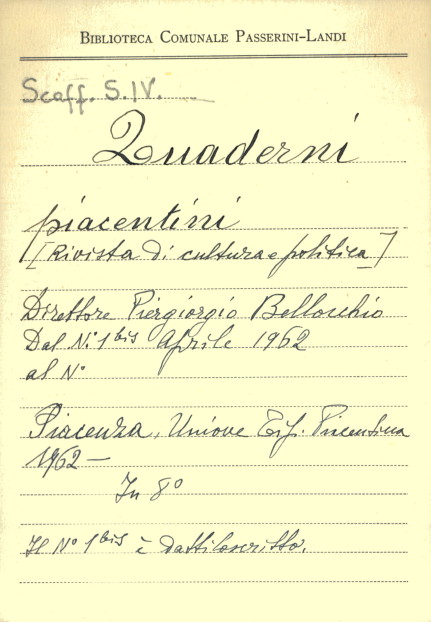 BIBLIOTECA COMUNALE PASSERINI-LANDI
Scaff. S.IV.
Quaderni
piacentini
[Rivista di cultura e politica]
Direttore Piergiorgio Bellocchio
Dal N. 1 bis Aprile 1962
al N°
Piacenza, Unione Tip. Piacentina
1962 —
In 8°
Il N° 1 bis è dattiloscritto.